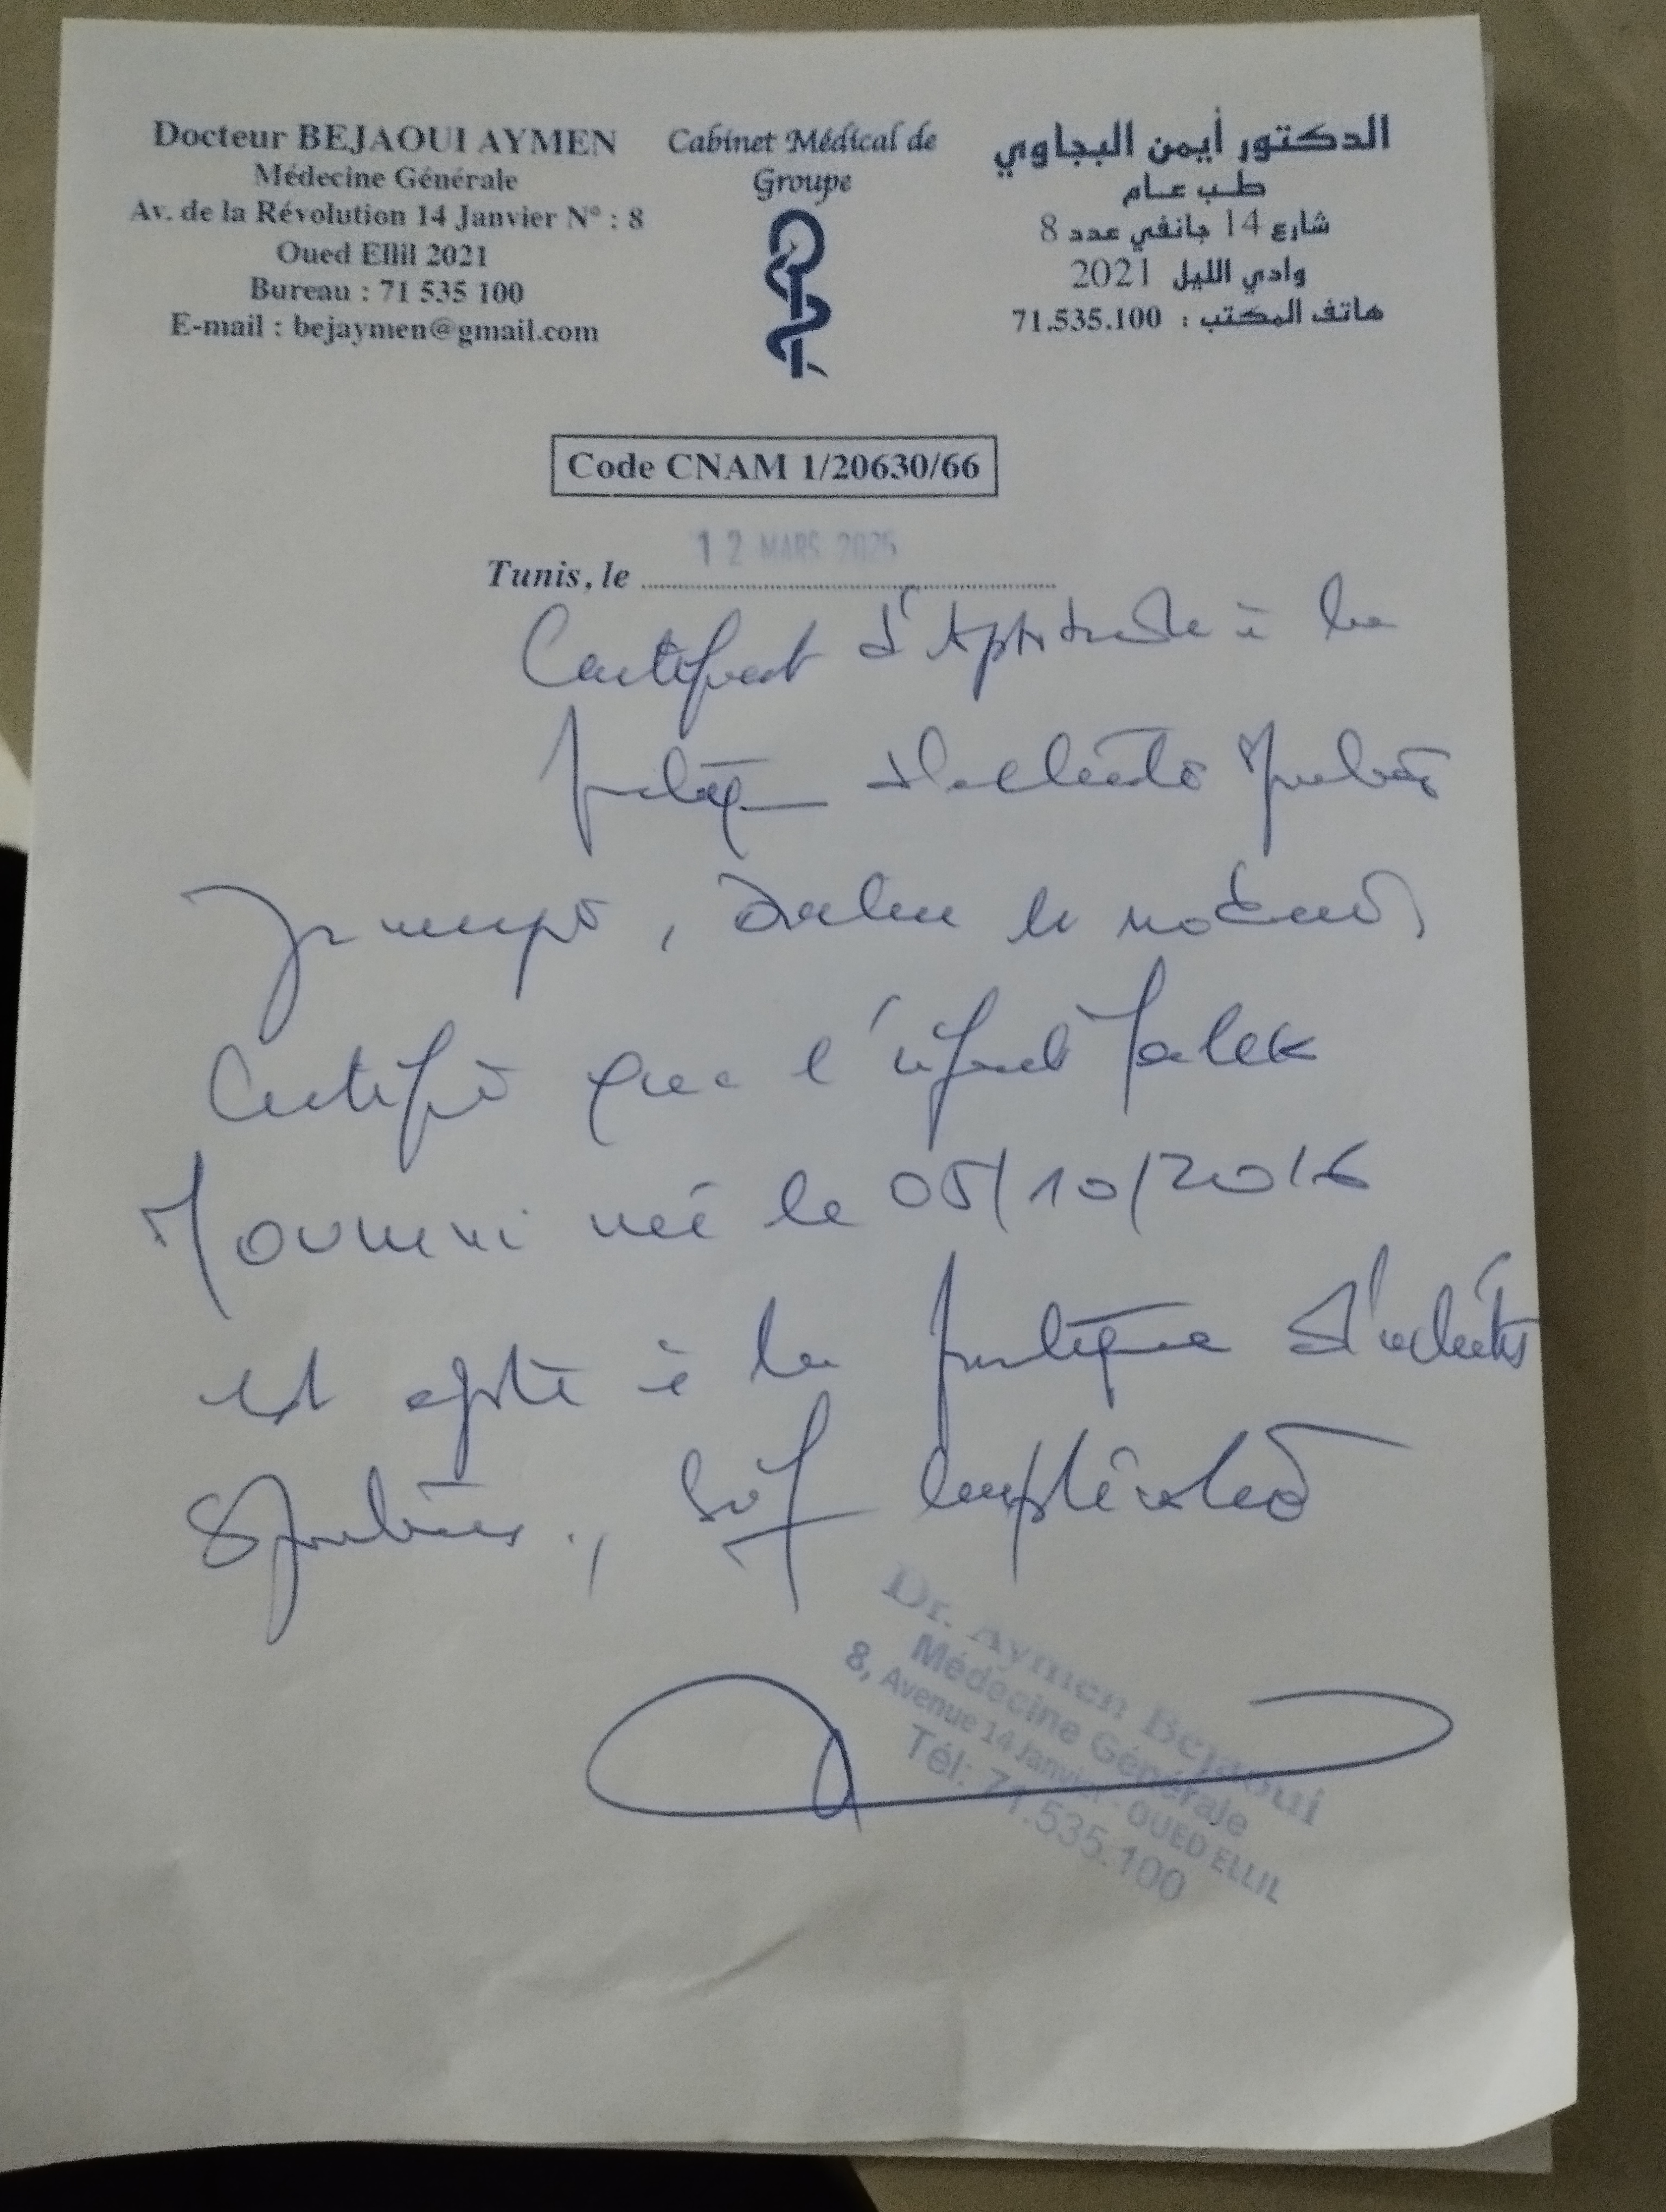 Docteur BEJAOUI AYMEN
Médecine Générale
Av. de la Révolution 14 Janvier N° : 8
Oued Ellil 2021
Bureau : 71 535 100
E-mail : bejaymen@gmail.com
Cabinet Médical de
Groupe
الدكتور أيمن البجاوي
طب عام
شارع 14 جانفي عدد 8
وادي الليل 2021
هاتف المكتب : 71.535.100
Code CNAM 1/20630/66
12 MARS 2025
Tunis, le
Certificat d'Aptitude à la
pratique d'activités
Je soussigné, Docteur
Certifie que l'enfant Malek
Moumni né le 05/10/2016
est apte à la pratique d'activités
Sportives, sauf complication
Dr. Aymen Bejaoui
Médecine Générale
8, Avenue 14 Janvier - OUED ELLIL
Tél: 71.535.100